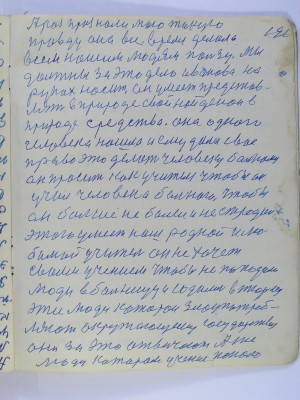 А раз признали мою живую
правду она все время делала
всем нашим людям пользу. Мы
должны за это дело Иванова на
руках носить он умеет представ-
лять в природе свои найденои в
природе средства. она одного
человека нашла и ему дали свое
право это делит человеку больном
он просит как учитель чтобы он
учил человека больного, чтобы
он больше не болел и не страдал
этого умеет наш родной и лю
бимой учитель он не хочет
своим учением чтобы не попадали
люди в больницу и садили в тюрму
эти люди которои злоупотреб-
ляют окружающему государству
они за это отвичают А же
люди которам учение